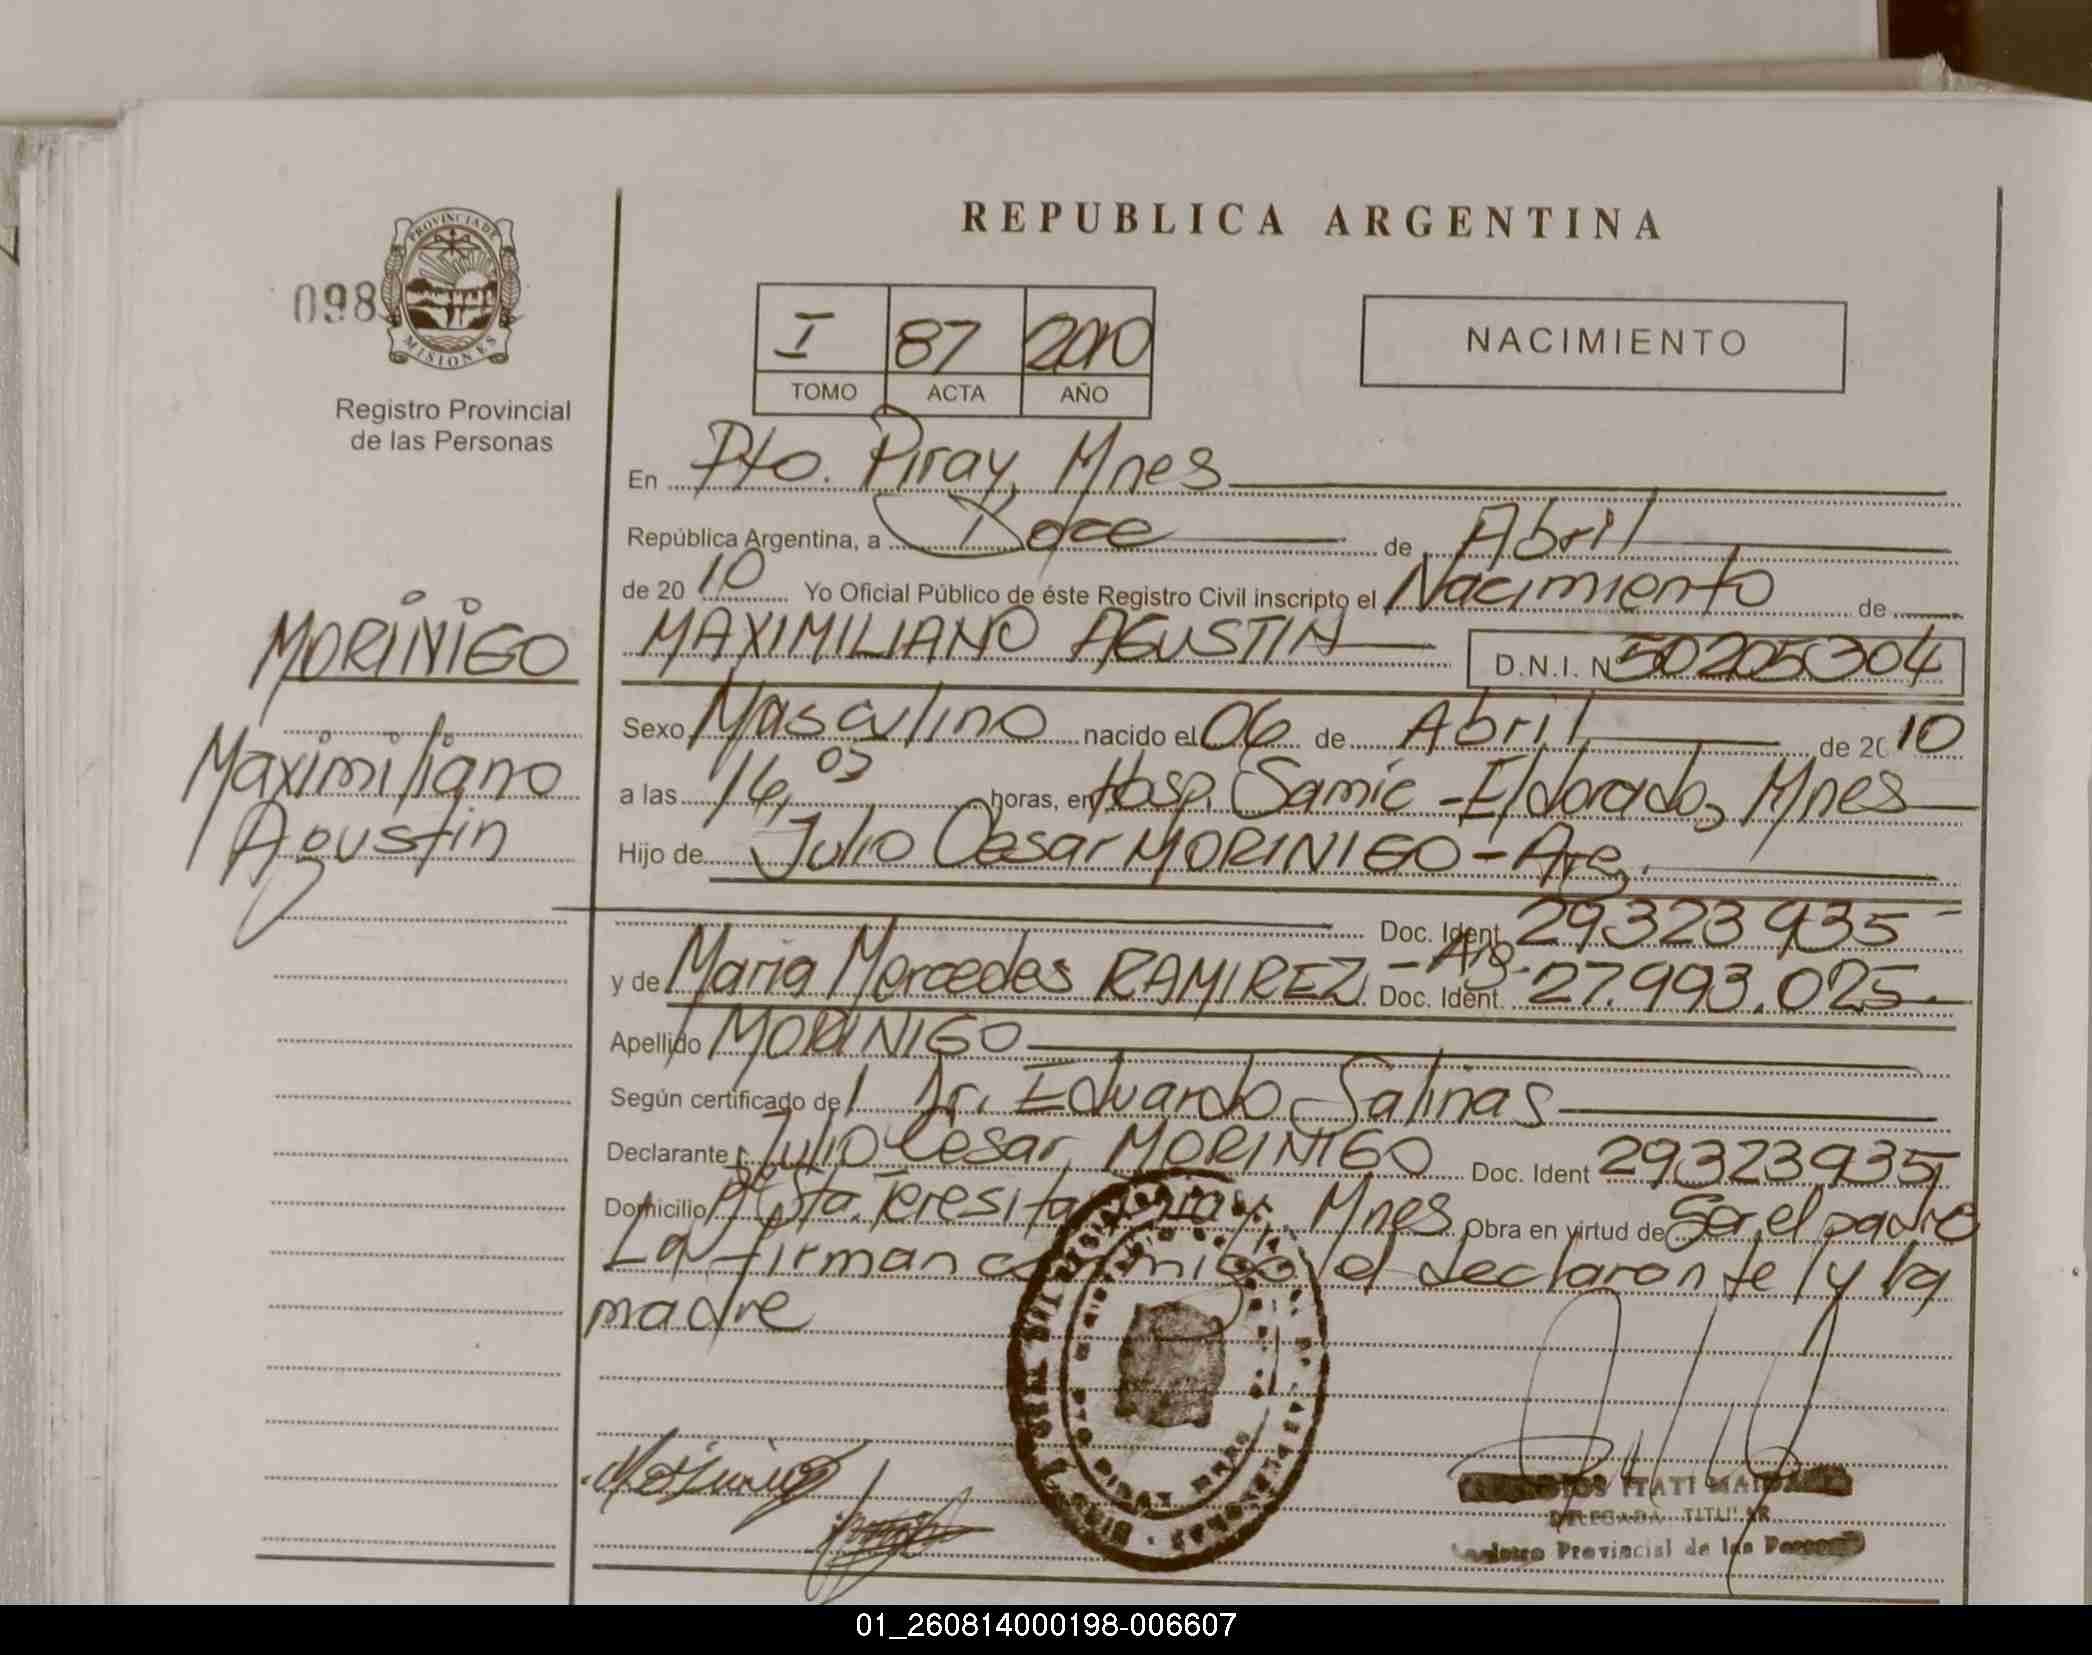 REPUBLICA ARGENTINA
PROVINCIA DE
MISIONES
098
Registro Provincial
de las Personas
I 87 2010
TOMO ACTA AÑO
NACIMIENTO
En Pto. Piray, Mnes
República Argentina, a Doce de Abril
de 20 10 Yo Oficial Público de éste Registro Civil inscripto el Nacimiento de
MORINIGO
MAXIMILIANO AGUSTIN D.N.I. N 50205304
Maximiliano
Agustin
Sexo Masculino nacido el 06 de Abril de 20 10
a las 14,05 horas, en Hosp. Samic - Eldorado, Mnes
Hijo de Julio Cesar MORINIGO - Arg.
Doc. Ident. 29323935
y de Maria Mercedes RAMIREZ - Arg. Doc. Ident. 27.993.025
Apellido MORINIGO
Según certificado de Dr. Eduardo Salinas
Declarante Julio Cesar MORINIGO Doc. Ident 29323935
Domicilio Sta. Teresita Mnes Obra en virtud de Ser el padre
La firman conmigo el declarante y la
madre
ITATI
DELEGADA TITULAR
Registro Provincial de las Personas
01_260814000198-006607